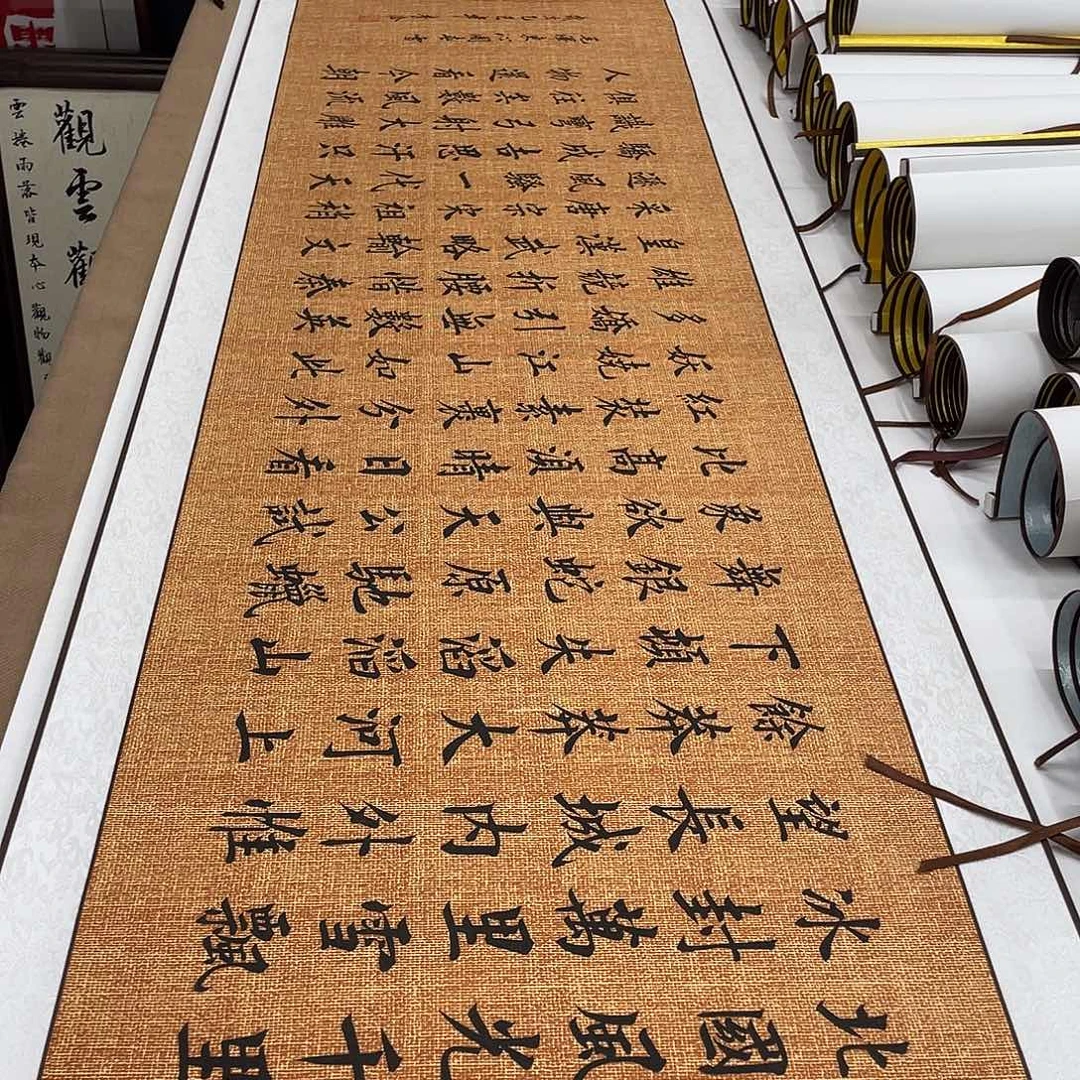 北國風光千里
冰封萬里雪飄
望長城内外惟
餘莽莽大河上
下頓失滔滔山
舞銀蛇原馳蠟
象欲與天公試
比高須晴日看
紅裝素裹分外
妖嬈江山如此
多嬌引無數英
雄競折腰惜秦
皇漢武略輸文
采唐宗宋祖稍
遜風騷一代天
驕成吉思汗只
識彎弓射大雕
俱往矣數風流
人物還看今朝
毛澤東沁園春雪
觀雲觀
雲捲雨落皆現本心觀物觀